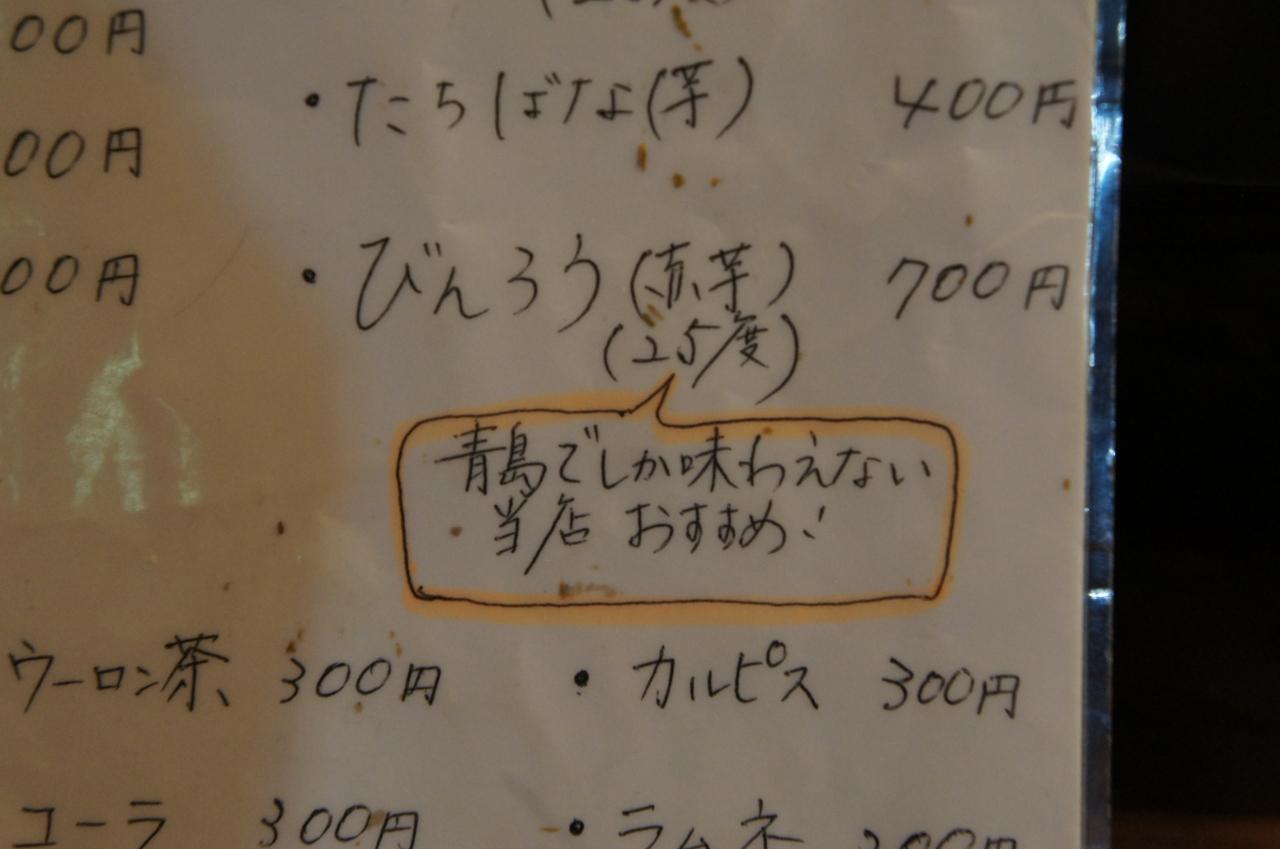 00円
・たちばな(芋) 400円
00円
00円
・びんろう(赤芋) 700円
(25度)
青島でしか味わえない
当店おすすめ!
ウーロン茶 300円
・カルピス 300円
コーラ 300円
・ラムネ 300円